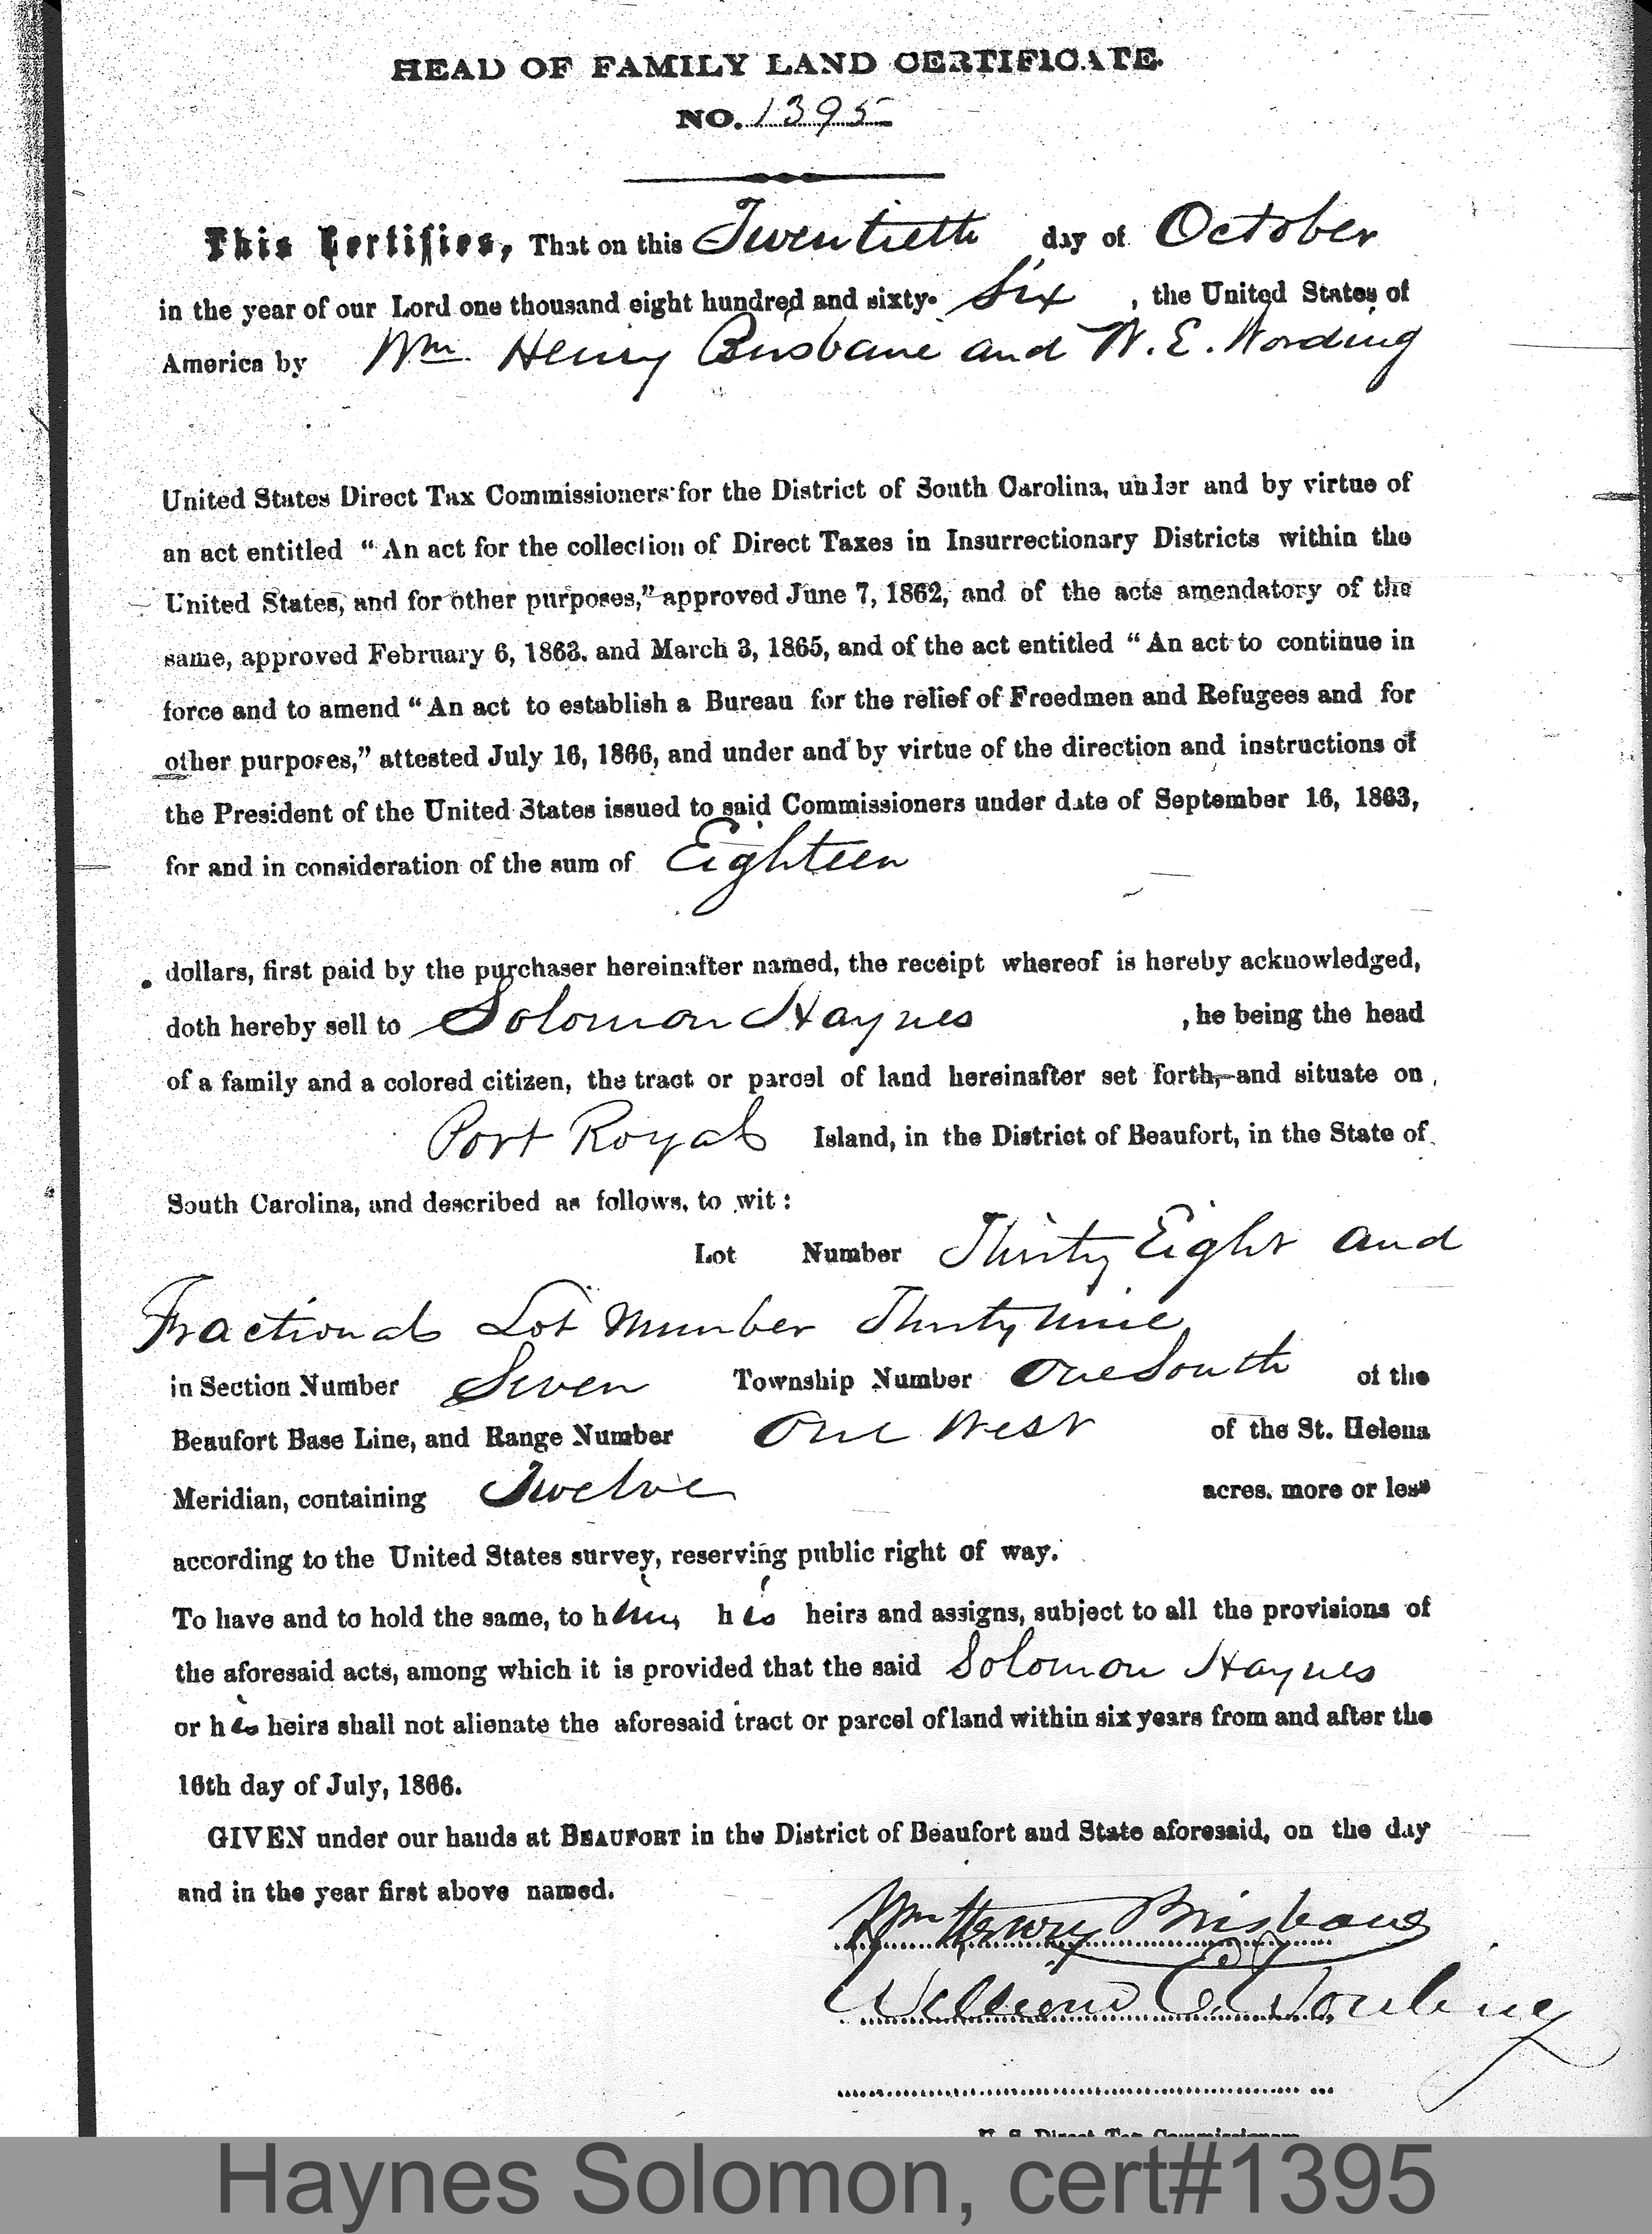 HEAD OF FAMILY LAND CERTIFICATE.
NO. 1395
This Certifies, That on this Twentieth day of October
in the year of our Lord one thousand eight hundred and sixty- Six , the United States of
America by Wm. Henry Brisbane and W. E. Wording
United States Direct Tax Commissioners for the District of South Carolina, under and by virtue of
an act entitled “ An act for the collection of Direct Taxes in Insurrectionary Districts within the
United States, and for other purposes,” approved June 7, 1862, and of the acts amendatory of the
same, approved February 6, 1863. and March 3, 1865, and of the act entitled “ An act to continue in
force and to amend “ An act to establish a Bureau for the relief of Freedmen and Refugees and for
other purposes,” attested July 16, 1866, and under and by virtue of the direction and instructions of
the President of the United States issued to said Commissioners under date of September 16, 1863,
for and in consideration of the sum of Eighteen
dollars, first paid by the purchaser hereinafter named, the receipt whereof is hereby acknowledged,
doth hereby sell to Solomon Haynes , he being the head
of a family and a colored citizen, the tract or parcel of land hereinafter set forth, and situate on
Port Royal Island, in the District of Beaufort, in the State of
South Carolina, and described as follows, to wit :
Lot Number Thirty Eight and
Fractional Lot Number Thirty nine
in Section Number Seven Township Number One South of the
Beaufort Base Line, and Range Number One West of the St. Helena
Meridian, containing Twelve acres. more or less
according to the United States survey, reserving public right of way.
To have and to hold the same, to him, his heirs and assigns, subject to all the provisions of
the aforesaid acts, among which it is provided that the said Solomon Haynes
or his heirs shall not alienate the aforesaid tract or parcel of land within six years from and after the
16th day of July, 1866.
GIVEN under our hands at BEAUFORT in the District of Beaufort and State aforesaid, on the day
and in the year first above named.
Wm Henry Brisbane
William E. Wording
U. S. Direct Tax Commissioners
Haynes Solomon, cert#1395